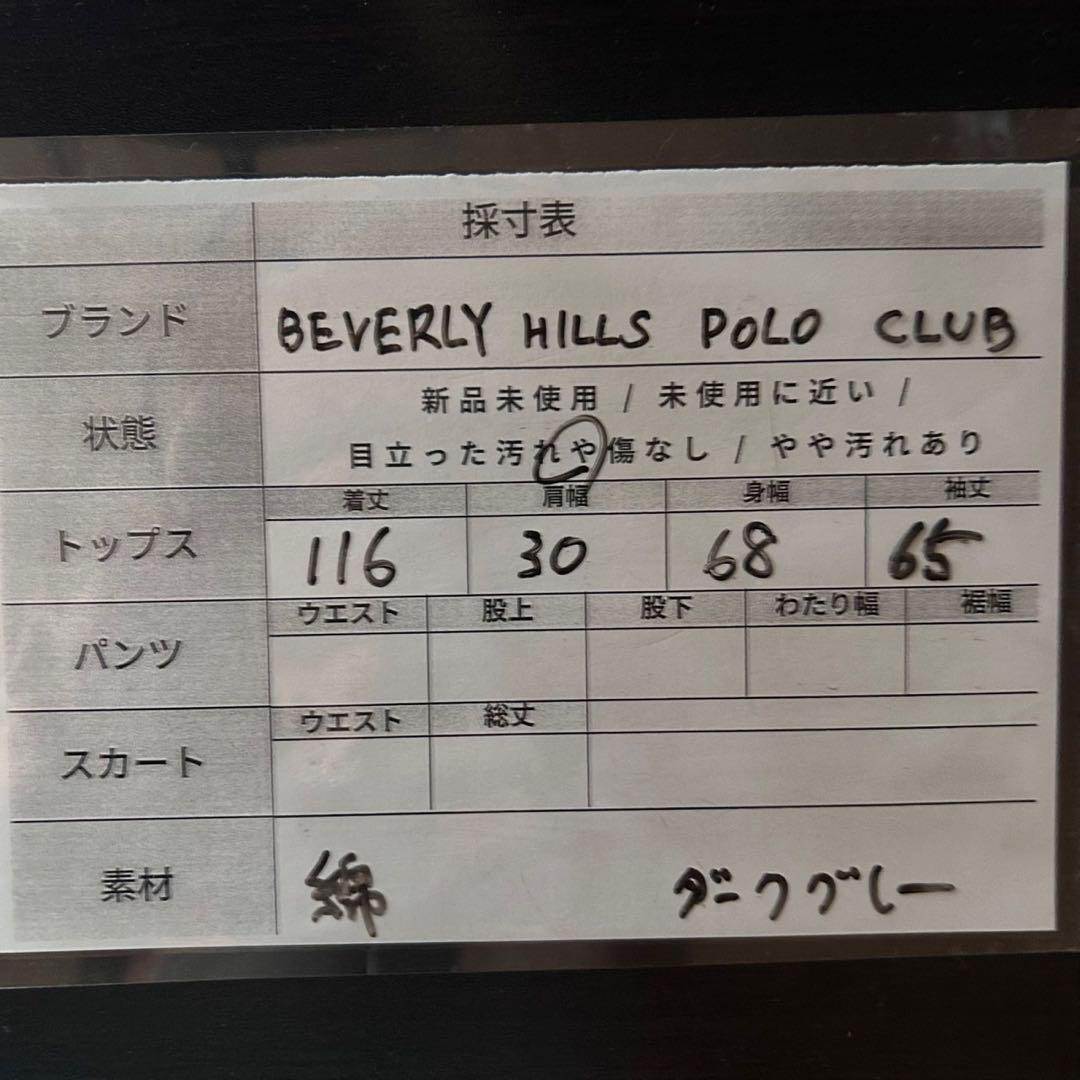 採寸表
ブランド BEVERLY HILLS POLO CLUB
状態 新品未使用 / 未使用に近い /
目立った汚れや傷なし / やや汚れあり
着丈 肩幅 身幅 袖丈
トップス 116 30 68 65
ウエスト 股上 股下 わたり幅 裾幅
パンツ
ウエスト 総丈
スカート
素材 綿 ダークグレー